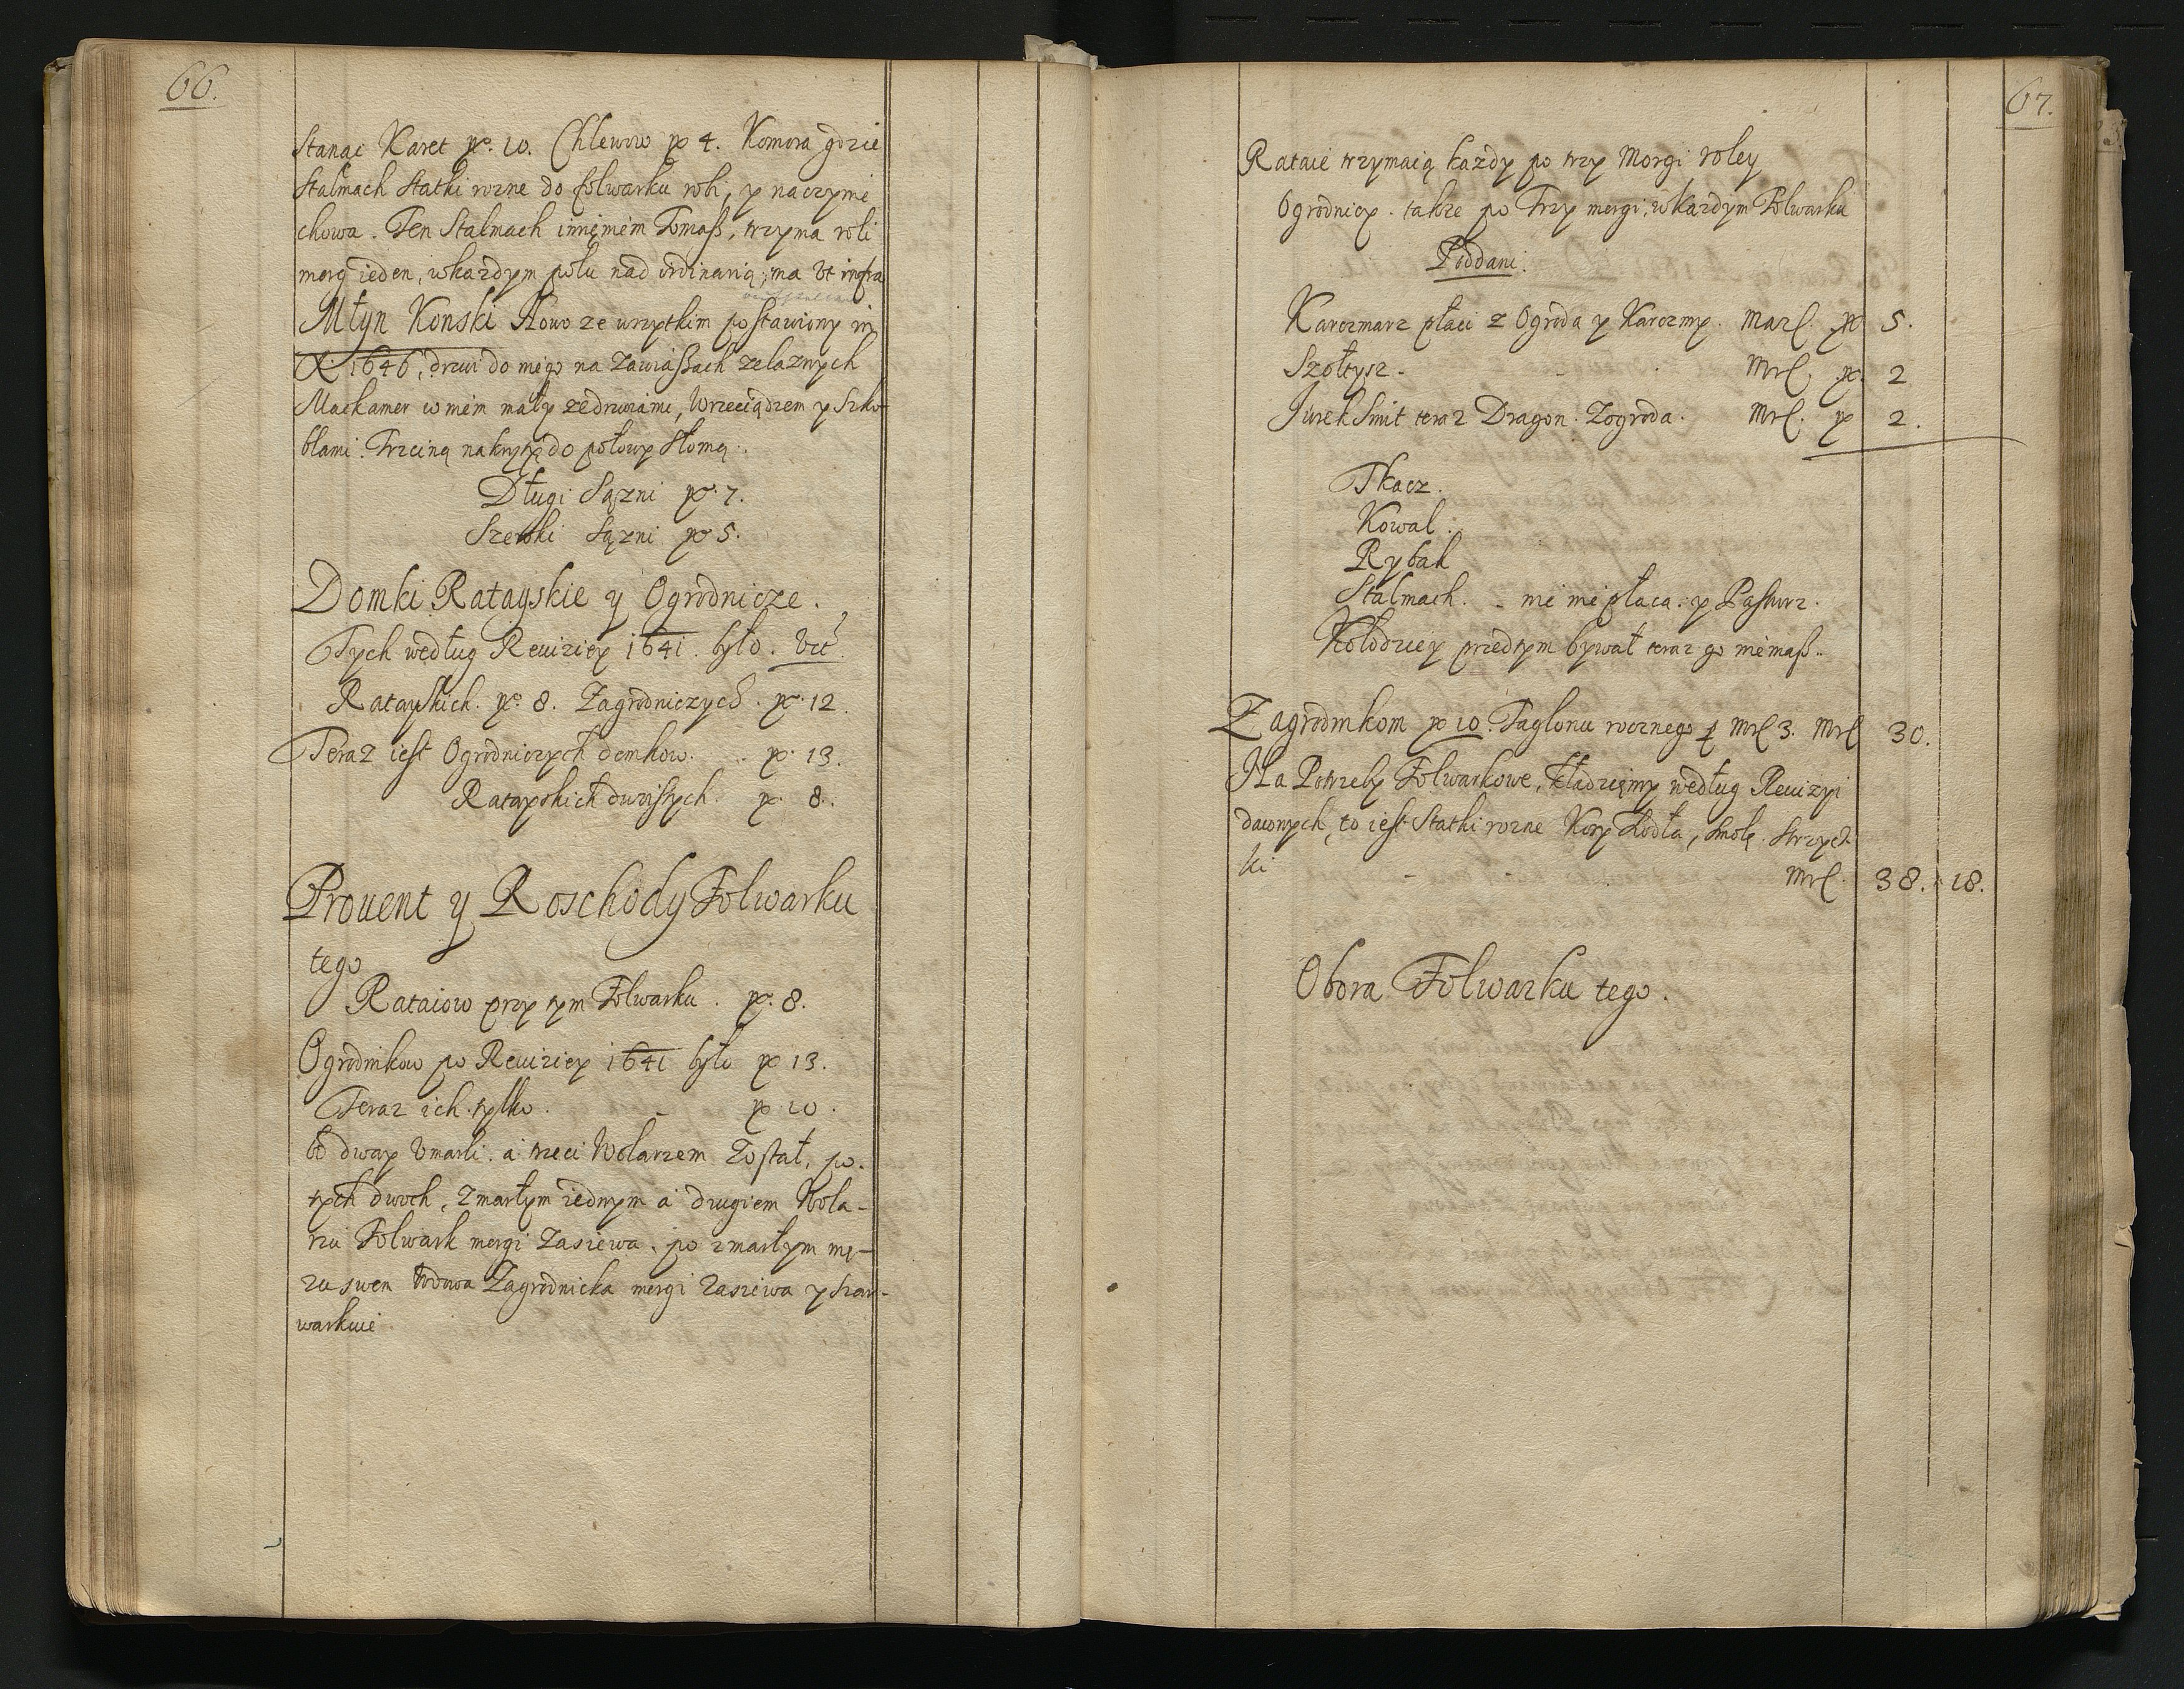 66.
Stanąc Karet No. 10. Chlewow No 4. Komora gdzie
Stalmach Statki rozne do folwarku robi, y naczynie
chowa. Ten Stalmach imięniem Tomaß, trzyma roli
morg ieden, w kazdym polu nad ordinarią, ma Vt infra
Młyn Konski Nowo ze wszytkim postawiony in
Ao. 1646, drzwi do niego na Zawiaßach zelaznych
Mackamer w niem mały ze drzwiami, Wrzeciądzem y Szko-
blami. Trzciną nakryty do połowy Słomą.
Długi Sązni No. 7.
Szeroki Sązni No 5.
Domki Ratayskie y Ogrodnicze.
Tych według Reuiziey 1641. było. Vtt.
Ratayskich. No. 8. Zagrodniczych. No. 12.
Teraz iest Ogrodniczych domkow. No. 13.
Ratayskich dwoistych. No. 8.
Prouent y Roschody Folwarku
tego
Rataiow przy tym Folwarku. No. 8.
Ogrodnikow po Reuiziey 1641 było No 13.
Teraz ich tylko. - No. 10.
bo dway Vmarli. a trzeci Wolarzem Został, po.
tych dwoch, zmarłym iednym a drugiem Wola-
rzu Folwark morgi Zasiewa, po zmarłym mę-
zu swem Wdowa Zagrodnicka morgi zasiewa y szar-
warkuie
67.
Rataie trzymaią kazdy po trzy Morgi roley
Ogrodnicy. takze po Trzy morgi, w kazdym Folwarku
Poddani.
Karczmarz płaci z Ogroda y Karczmy. Marl. No 5.
Szołtysz - - Mrl. No. 2
Jurek Smit teraz Dragon. Zogroda. Mrl. No 2.
Tkacz.
Kowal.
Rybak
Stalmach. - nie nie płaca. y Pasturz.
Kołodziey przedtym bywał teraz go niemaß..
Zagrodnikom No 10. Taglonu rocznego Mrl 3. Mrl 30.
Na Potrzeby Folwarkowe, Kładzięmy według Reuizyi
dawnych, to iest Statki rozne Kory Łodła, Smolę. Strych
ki - - Mrl. 38. 18.
Obora Folwarku tego.